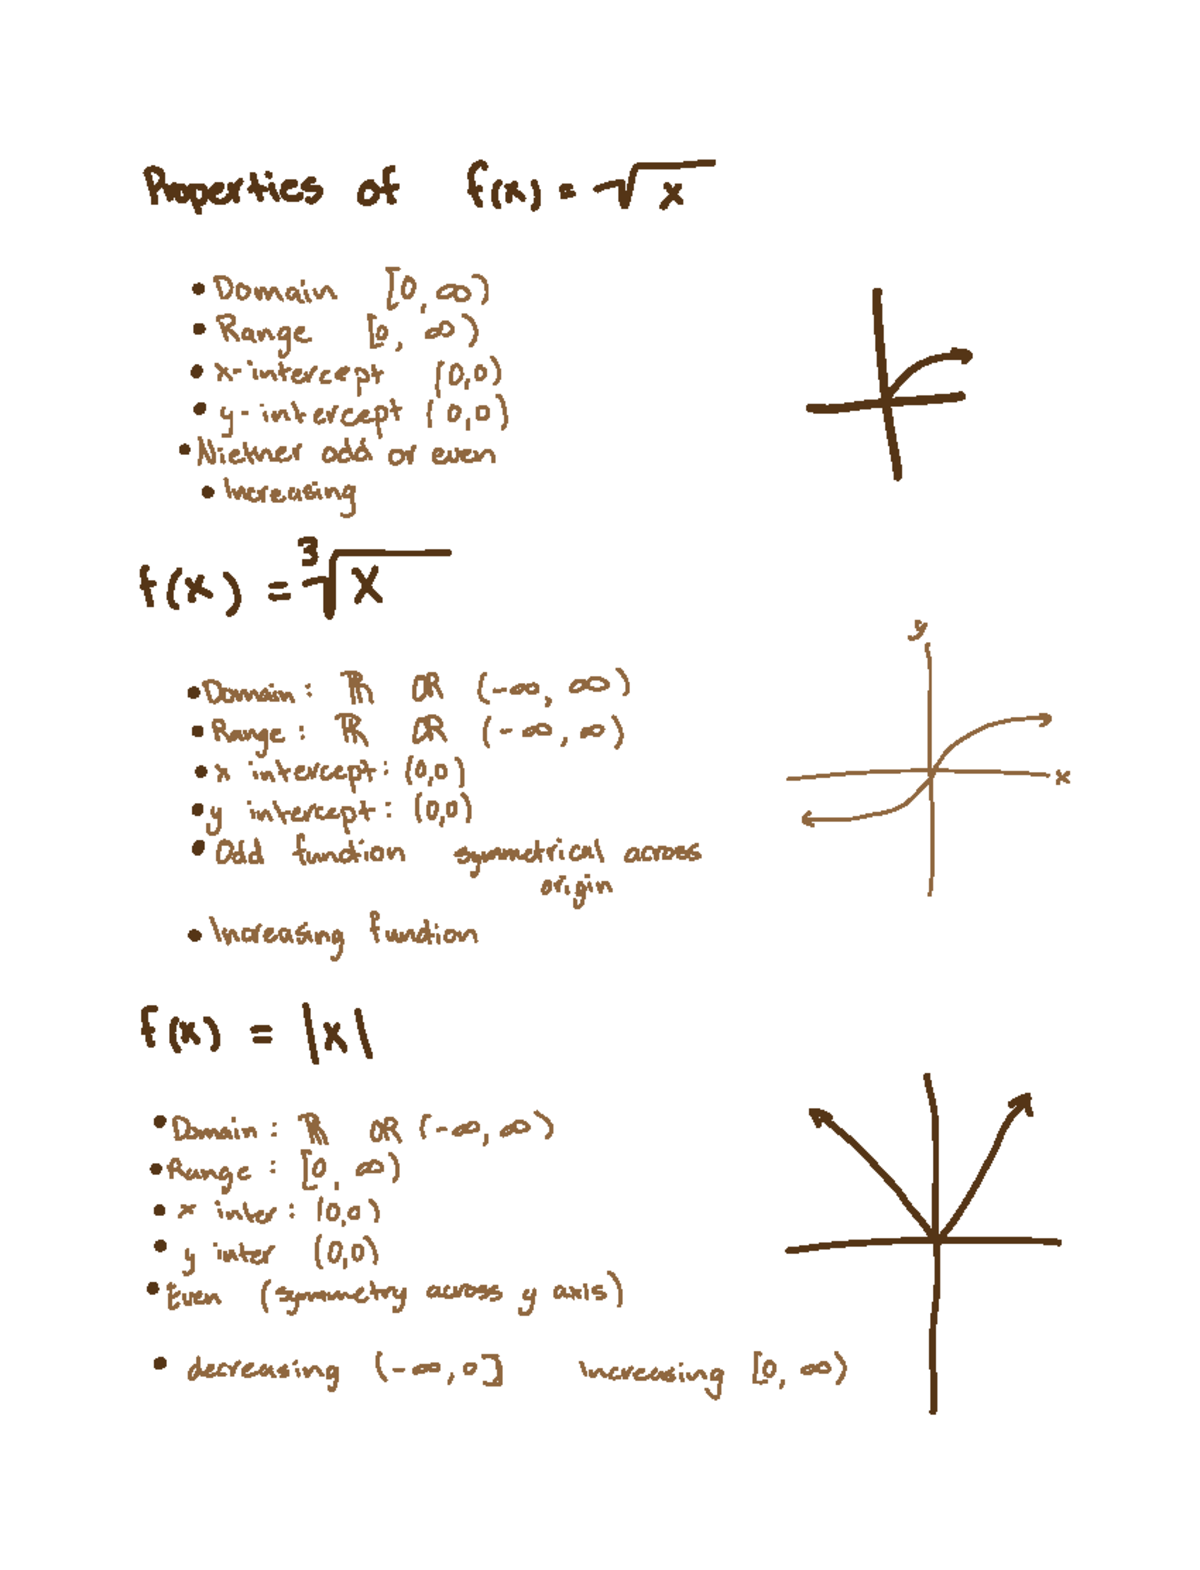 Properties of f(x) = √x
• Domain [0, ∞)
• Range [0, ∞)
• x-intercept (0,0)
• y-intercept (0,0)
• Niether odd or even
• Increasing
f(x) = ³√x
y
• Domain: ℝ OR (-∞, ∞)
• Range: ℝ OR (-∞, ∞)
• x intercept: (0,0)
x
• y intercept: (0,0)
• Odd function symmetrical across
origin
• Increasing function
f(x) = |x|
• Domain: ℝ OR (-∞, ∞)
• Range: [0, ∞)
• x inter: (0,0)
• y inter (0,0)
• Even (symmetry across y axis)
• decreasing (-∞, 0] Increasing [0, ∞)